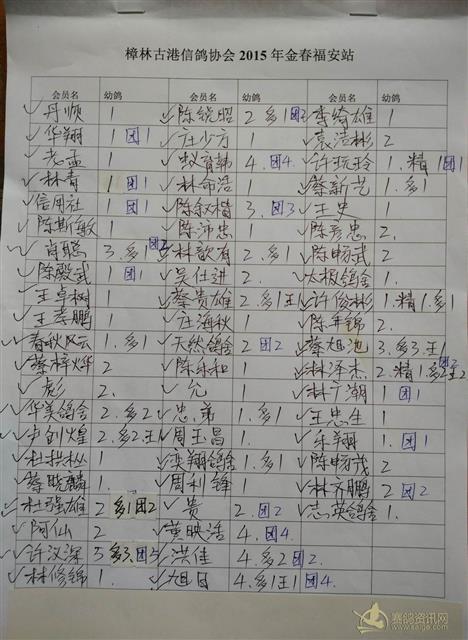 樟林古港信鸽协会 2015 年金春福安站
会员名 幼鸽 会员名 幼鸽 会员名 幼鸽
丹顺 1 陈锐昭 2.多1团2 李绮雄 1
华翔 1 团1 庄少方 1 袁洁彬 2
老孟 1 蚁育韩 4.团4 许玩玲 1.精1团1
林青 1 团1 林命浩 1 蔡新艺 1.多1
信用社 1 团1 陈叙楷 3.团3 王史 1
陈斯敏 1 陈沛忠 1 陈彦忠 2.
肖聪 3.多1团2 林歆有 2 陈畅武 2
陈殿武 1 团1 吴仕进 2 太极鸽舍 1
王卓树 1 蔡贵雄 2.多1王1 许俊彬 1.精1.多1
王孝鹏 1 庄海秋 1 陈再锦 2.
春秋风云 1.多1 天然鸽舍 2 团2 蔡旭池 3.多3.王1
蔡梓炎华 2 陈乐和 1 林泽杰 2.精1.多2王2团2
彪 2. 允 1 林广潮 1 团1
华美鸽舍 2.多2 忠弟 1.多1 王忠生 1
卢创煌 2.多2王1 周玉昌 1 翔 1.团1
杜拱松 1 奕翔鸽舍 1.多1 陈畅茂 2
蔡晓麟 1 周利锋 1 林齐鹏 2 团2
杜强雄 2 多1团2 贵 2.团2 志英鸽舍 1.
阿仙 2 黄映浩 4.团4.
许汉深 5 多3.团5 洪佳 4.多2团2.
林修锦 1. 旭日 4.多1王1团4.
赛鸽资讯网
www.saige.com